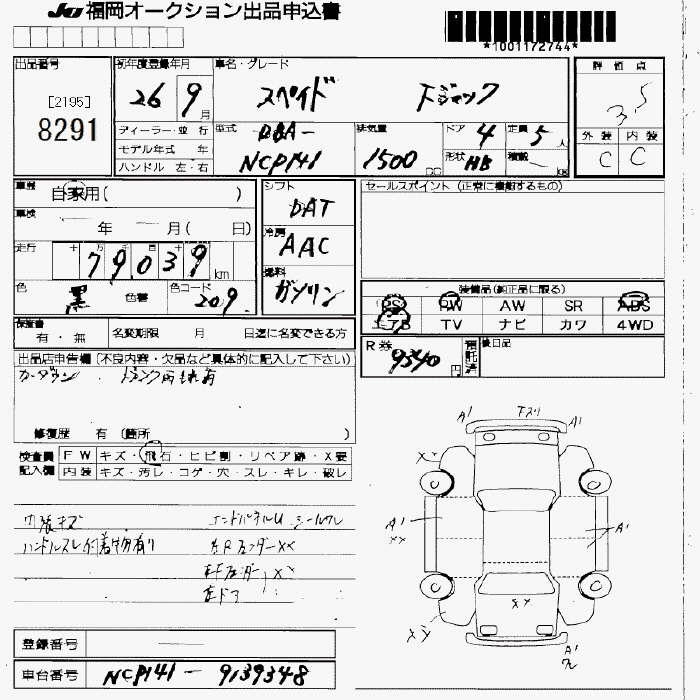 JU 福岡オークション出品申込書
*1001172744*
出品番号
[2195]
8291
初年度登録年月
26 9月
車名・グレード
スペイド Fジャック
評価点
3.5
外装 内装
C C
ディーラー・並行
モデル年式 年
ハンドル 左・右
型式
DBA-
NCP141
排気量
1500 cc
ドア 4
定員 5人
形状 HB
積載 kg
車歴
自家用( )
車検
年 月( 日)
走行
十 万 千 百 十
79039 km
色
黒
色替
色コード
209
シフト
DAT
冷房
AAC
燃料
ガソリン
セールスポイント (正常に機能するもの)
装備品(純正品に限る)
PS PW AW SR ABS
エアB TV ナビ カワ 4WD
保証書
有・無
名変期限 月 日迄に名変できる方
R券
9340円
預託済
後日品
出品店申告欄(不良内容・欠品など具体的に記入して下さい)
修復歴 有(箇所 )
検査員記入欄
FW キズ・飛石・ヒビ割・リペア跡・X要
内装 キズ・汚レ・コゲ・穴・スレ・キレ・破レ
内張キズ
エンドパネルU シールワレ
ハンドルスレ 付着物有り
右Rフェンダー XX
左Fフェンダー XX
左ドア
A' A'
XX
A'
XX
A'
XX
XX
A'
登録番号
車台番号
NCP141 - 9139348